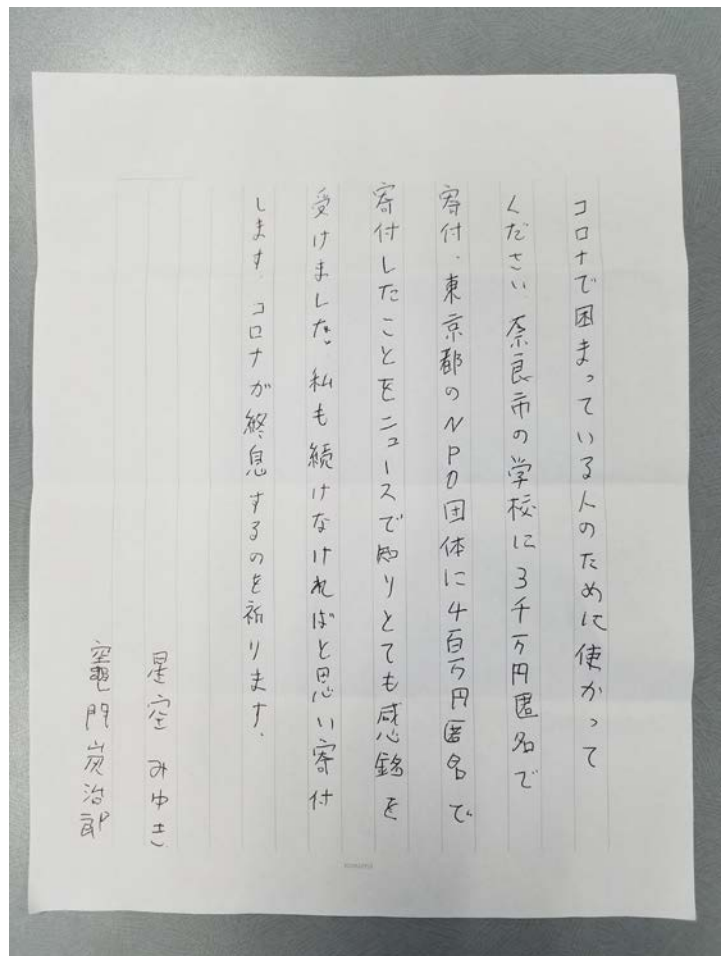 コロナで困まっている人のために使かって
ください 奈良市の学校に3千万円匿名で
寄付、東京都のNPO団体に4百万円匿名で
寄付したことをニュースで知りとても感銘を
受けました。私も続けなければと思い寄付
します、コロナが終息するのを祈ります、
星空 みゆき
竈門炭治郎